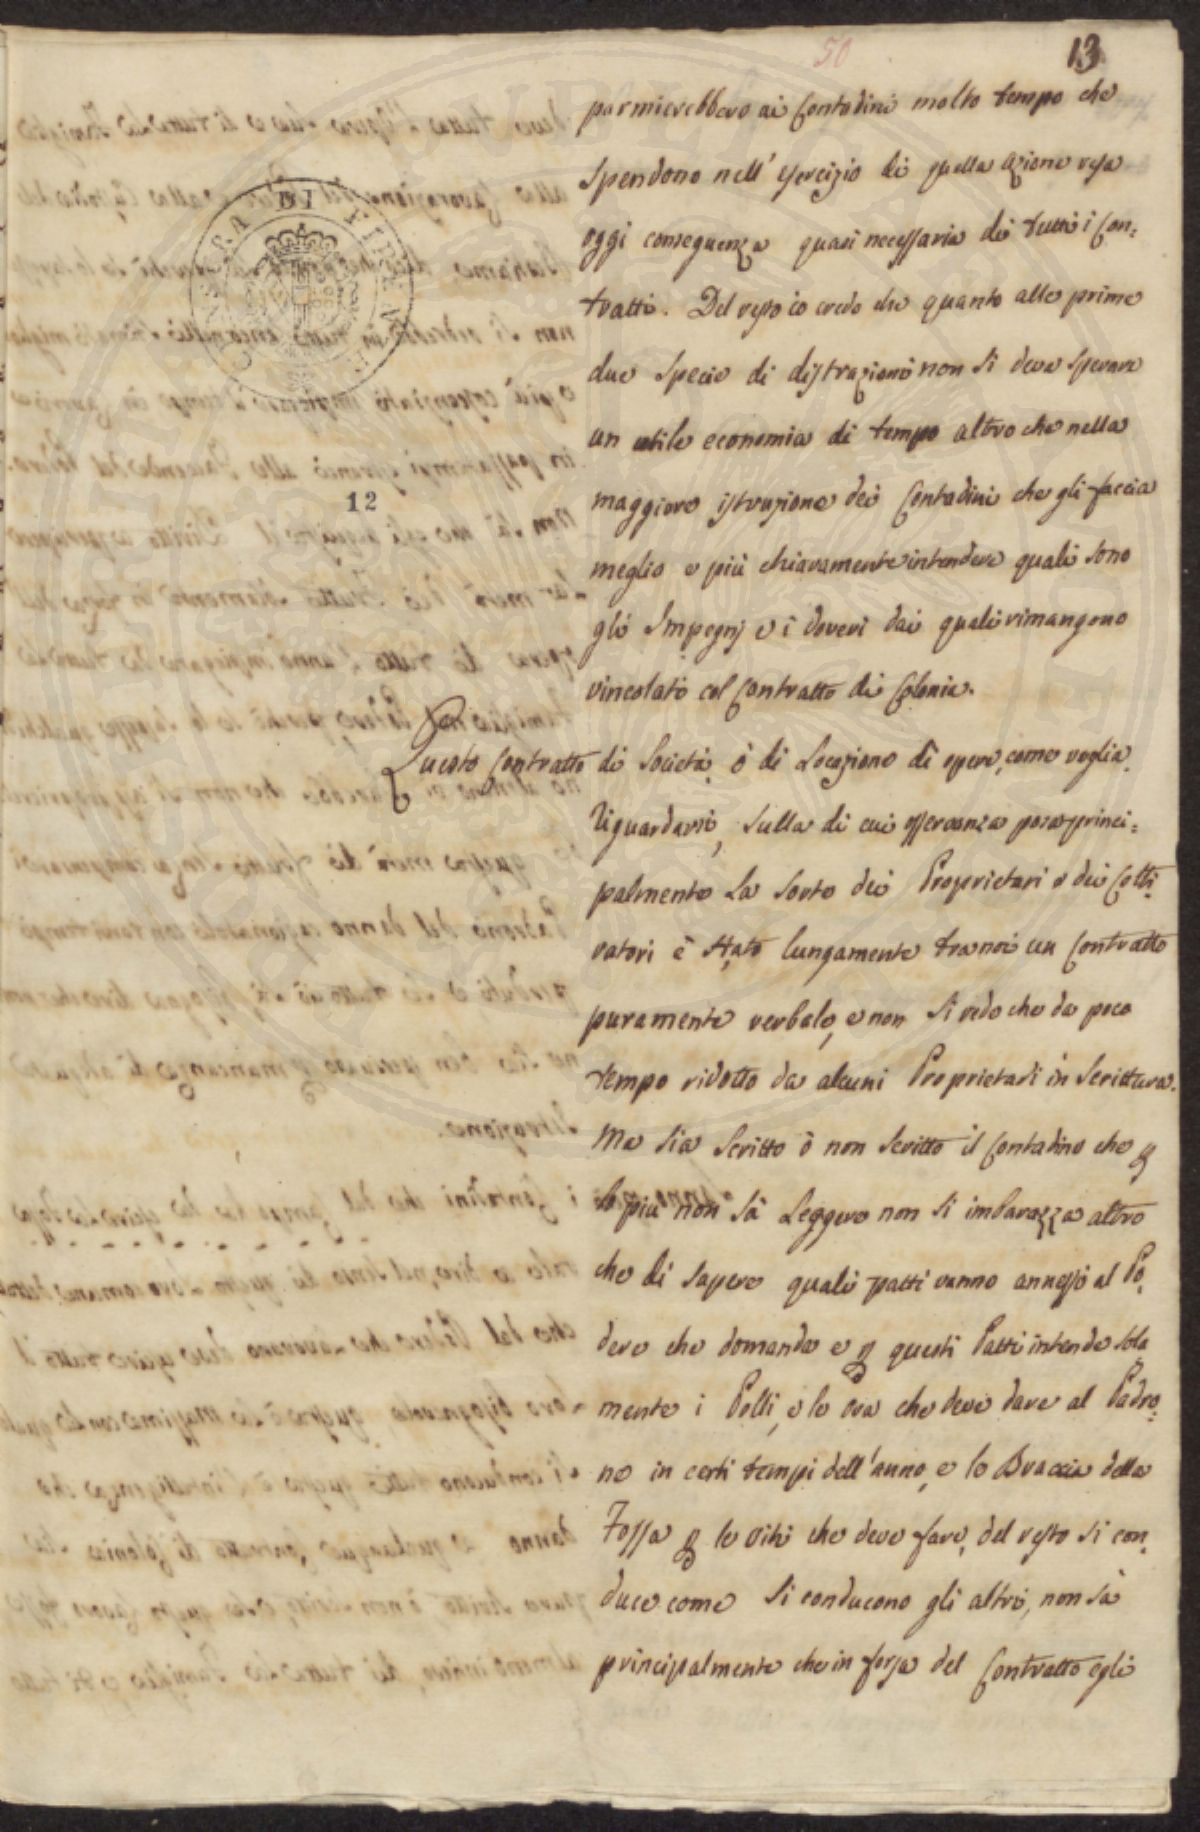 50
13
12
parmierebbero ai Contadini molto tempo che
spendono nell' esercizio di quella azione resa
oggi conseguenza quasi necessaria di tutti i Con=
tratti. Del resto io credo che quanto alle prime
due specie di distrazioni non si deva sperare
un utile economia di tempo altro che nella
maggiore istruzione dei Contadini che gli faccia
meglio e più chiaramente intendere quali sono
gli Impegnj e i doveri dai quali rimangono
vincolati col Contratto di Colonia.
Questo Contratto di Società, ò di Locazione di opere, come voglia
riguardarsi, sulla di cui osservanza posa princi=
palmente la sorte dei Proprietari e dei Colti=
vatori è stato lungamente tra noi un Contratto
puramente verbale, e non si vede che da poco
tempo ridotto da alcuni Proprietari in Scrittura.
Ma sia scritto ò non scritto il Contadino che p
lo più non sà Leggere non si imbarazza altro
che di sapere quali patti vanno annessi al Po=
dere che domanda e p questi Patti intende sola=
mente i Polli, e le ova che deve dare al Padro=
ne in certi tempi dell'anno, e le Braccia della
Fossa p le viti che deve fare, del resto si con=
duce come si conducono gli altri, non sà
principalmente che in forza del Contratto egli